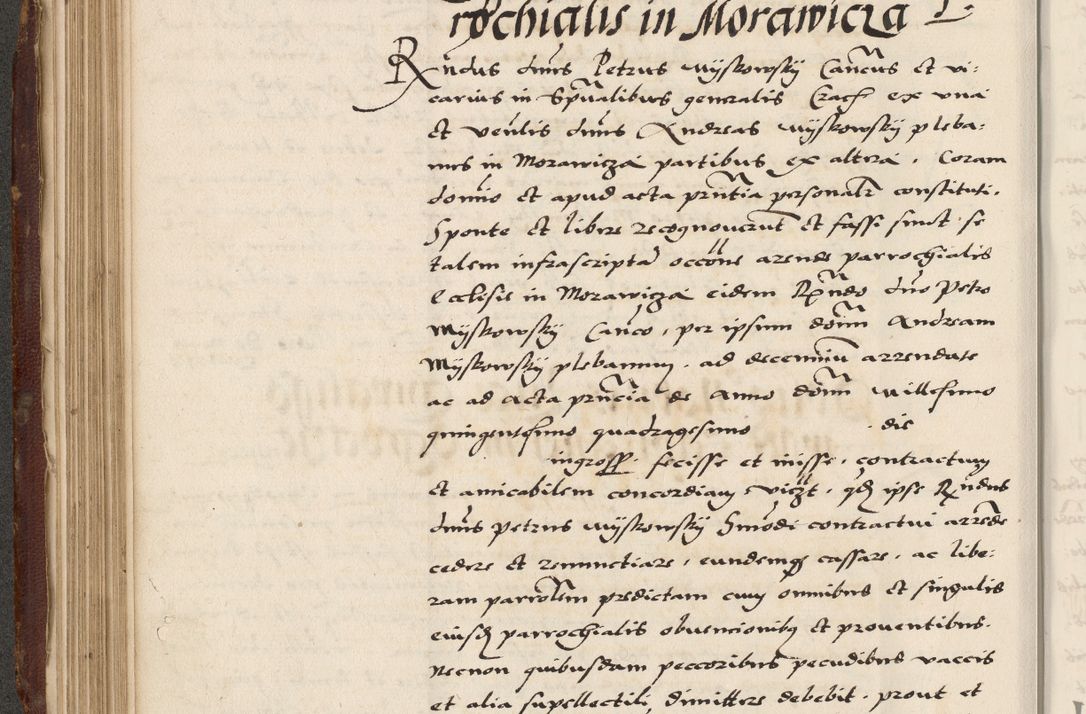 rochialis in Morawicza
Rndus dnus Petrus Myskowsky Cancus et vi-
carius in Spualibus generalis Crac ex una
et venlis dnus Andreas Myskowsky pleba-
nus in Morawicza partibus ex altera . Coram
domino et apud acta pntia personalr constituti .
Sponte et libere recognoverunt et fassi sunt se
talem infrascripta occone arende parrochialis
Ecclesie in Morawicza eidem Rndo dno Petro
Myskowsky Canco , per ipsum dnm Andream
Myskowsky plebanum . ad decenniu arrendate
ac ad acta pncia de Anno dnm Millesimo
quingentesimo quadragesimo . die
ingross fecisse et iniisse , contractum
et amicabilem concordiam , viczt . qd ipse Rndus
dnus Petrus Myskowsky hmodi contractui arrende
cedere et renunctiare , eundemq cassare , ac libe-
ram parrolem predictam cum omnibus et singulis
eiusd parrochialis obvencionibq et proventibus .
Necnon quibusdam peccoribus pecudibus vaccis
et alia supellectili , dimittere debebit . prout et